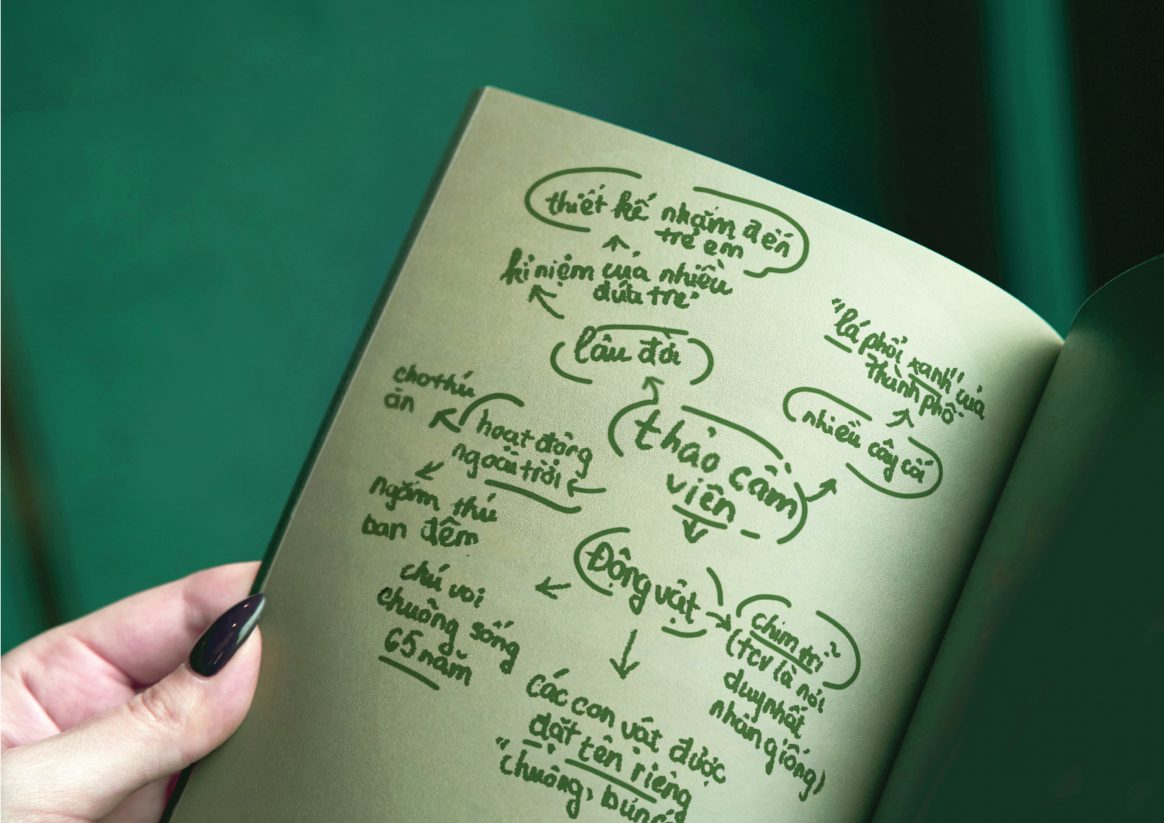 thiết kế nhắm đến
trẻ em
kỉ niệm của nhiều
đứa trẻ"
lâu đời
"lá phổi xanh" của
thành phố
nhiều cây cối
cho thú
ăn
hoạt động
ngoài trời
thảo cầm
viên
ngắm thú
ban đêm
Động vật
chú voi
chuông sống
65 năm
chim trĩ
(TCV là nơi
duy nhất
nhân giống)
các con vật được
đặt tên riêng
"chuông,